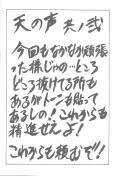 天の声 其ノ弐
今回もなかなか頑張
った様じゃの…ところ
どころ抜けてる所も
あるがトーンも貼って
あるしの!これからも
精進せえよ!
これからも頼むぞ!!